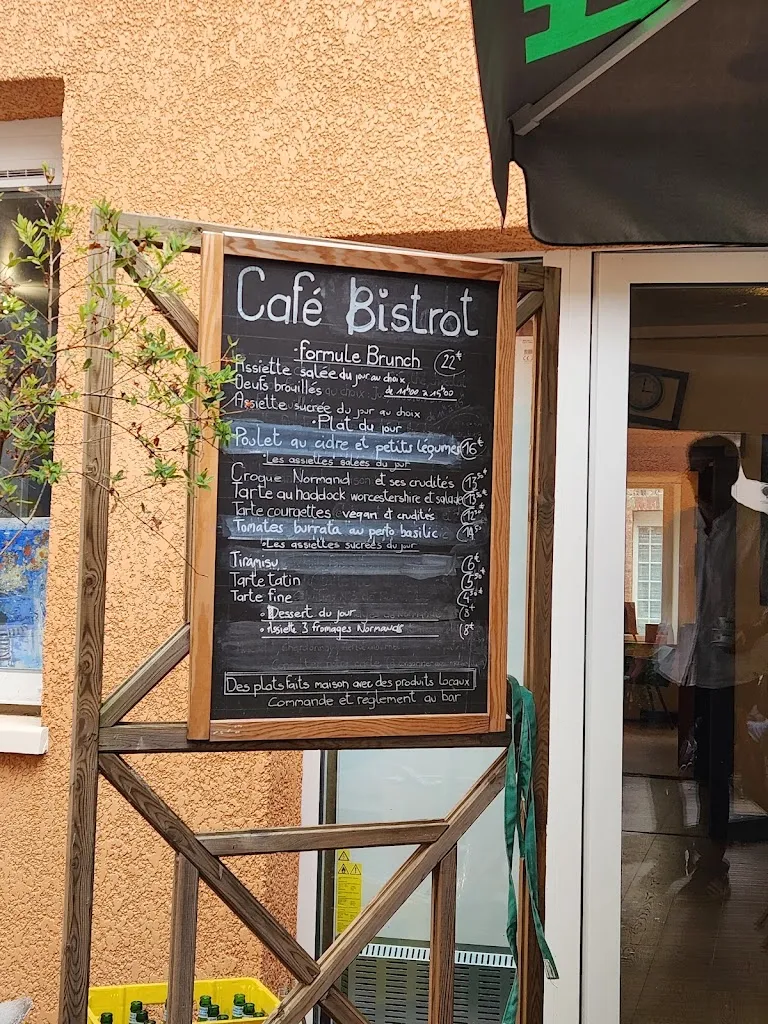 Café Bistrot
• formule Brunch 22€
Assiette salée du jour au choix
Oeufs brouillés de 11h00 à 15h00
Assiette sucrée du jour au choix
• Plat du jour
Poulet au cidre et petits légumes 16€
• Les assiettes salées du jour
Croque Normand et ses crudités
Tarte au haddock worcestershire et salade
Tarte courgettes vegan et crudités
Tomates burrata au pesto basilic
• Les assiettes sucrées du jour
Tiramisu 6€
Tarte tatin
Tarte fine
• Dessert du jour 8€
• Assiette 3 fromages Normands 8€
Des plats faits maison avec des produits locaux
Commande et réglement au bar